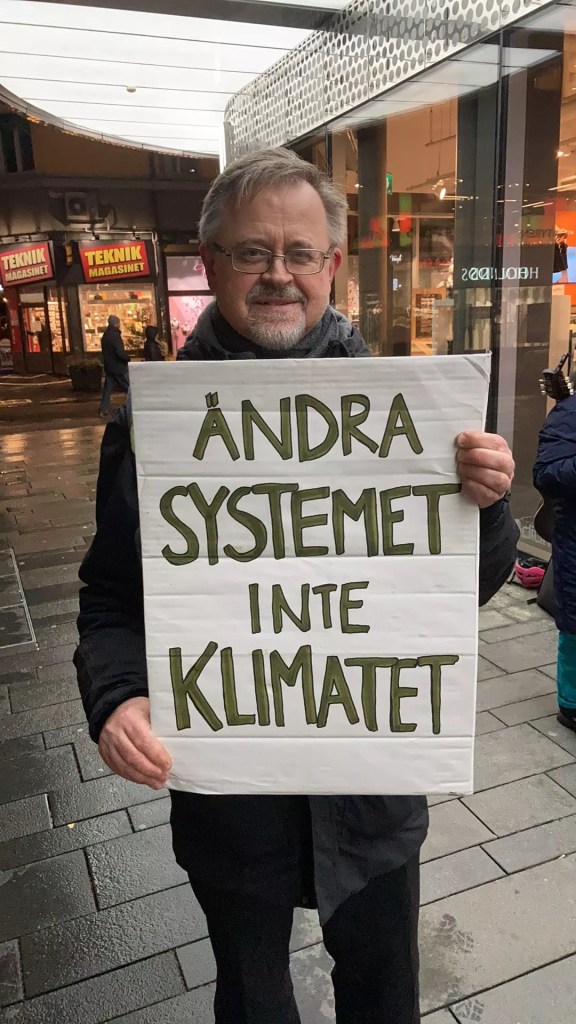 TEKNIK
MAGASINET
TEKNIK
MAGASINET
ÄNDRA
SYSTEMET
INTE
KLIMATET